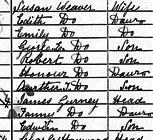 Susan Weaver Wife
Edith Do Daur
Emily Do Do
George Do Son
Robert Do Son
Honour Do Daur
Do Son
James Gurney Head
Fanny Do Daur
Edwin Do Son
Head